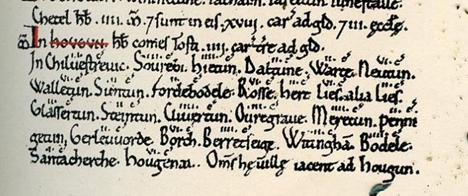 Cherel hb̄ .IIII. ꝏ. ⁊ sunt in eis .xvıı. car̄ ad gld̄. ⁊ III. eccłę.
ꝏ In hovgvn. hb̄ comes Tosti .IIII. car̄ tr̄e ad gld̄.
In Chiluestreuic. Sourebi. hietun. Daltune. Warte. Neutun.
Walletun. Suntun. fordebodele. Rosse. hert. Lies. alia Lies.
Glassertun. Steintun. Cliuertun. Ouregraue. Meretun. Penni
getun. Gerleuuorde. Borch. Berretseige. Witingha̅. Bodele.
Santacherche. hougenai. Om̄s hę uille iacent ad hougun.